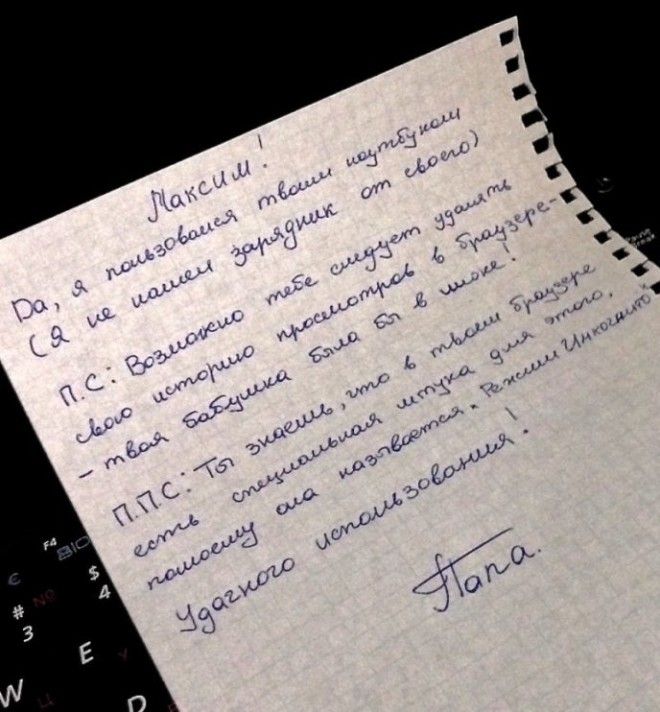 Максим!
Да, я пользовался твоим ноутбуком
(я не нашел зарядник от своего)
П.С: Возможно тебе следует удалять
свою историю просмотров в браузере-
- твоя бабушка была бы в шоке!
П.П.С: Ты знаешь, что в твоем браузере
есть специальная штука для этого,
помоему она называется "Режим Инкогнито"
Удачного использования!
Папа.
F4
€
$
4
#
№
3
E
У
W
Ц
D